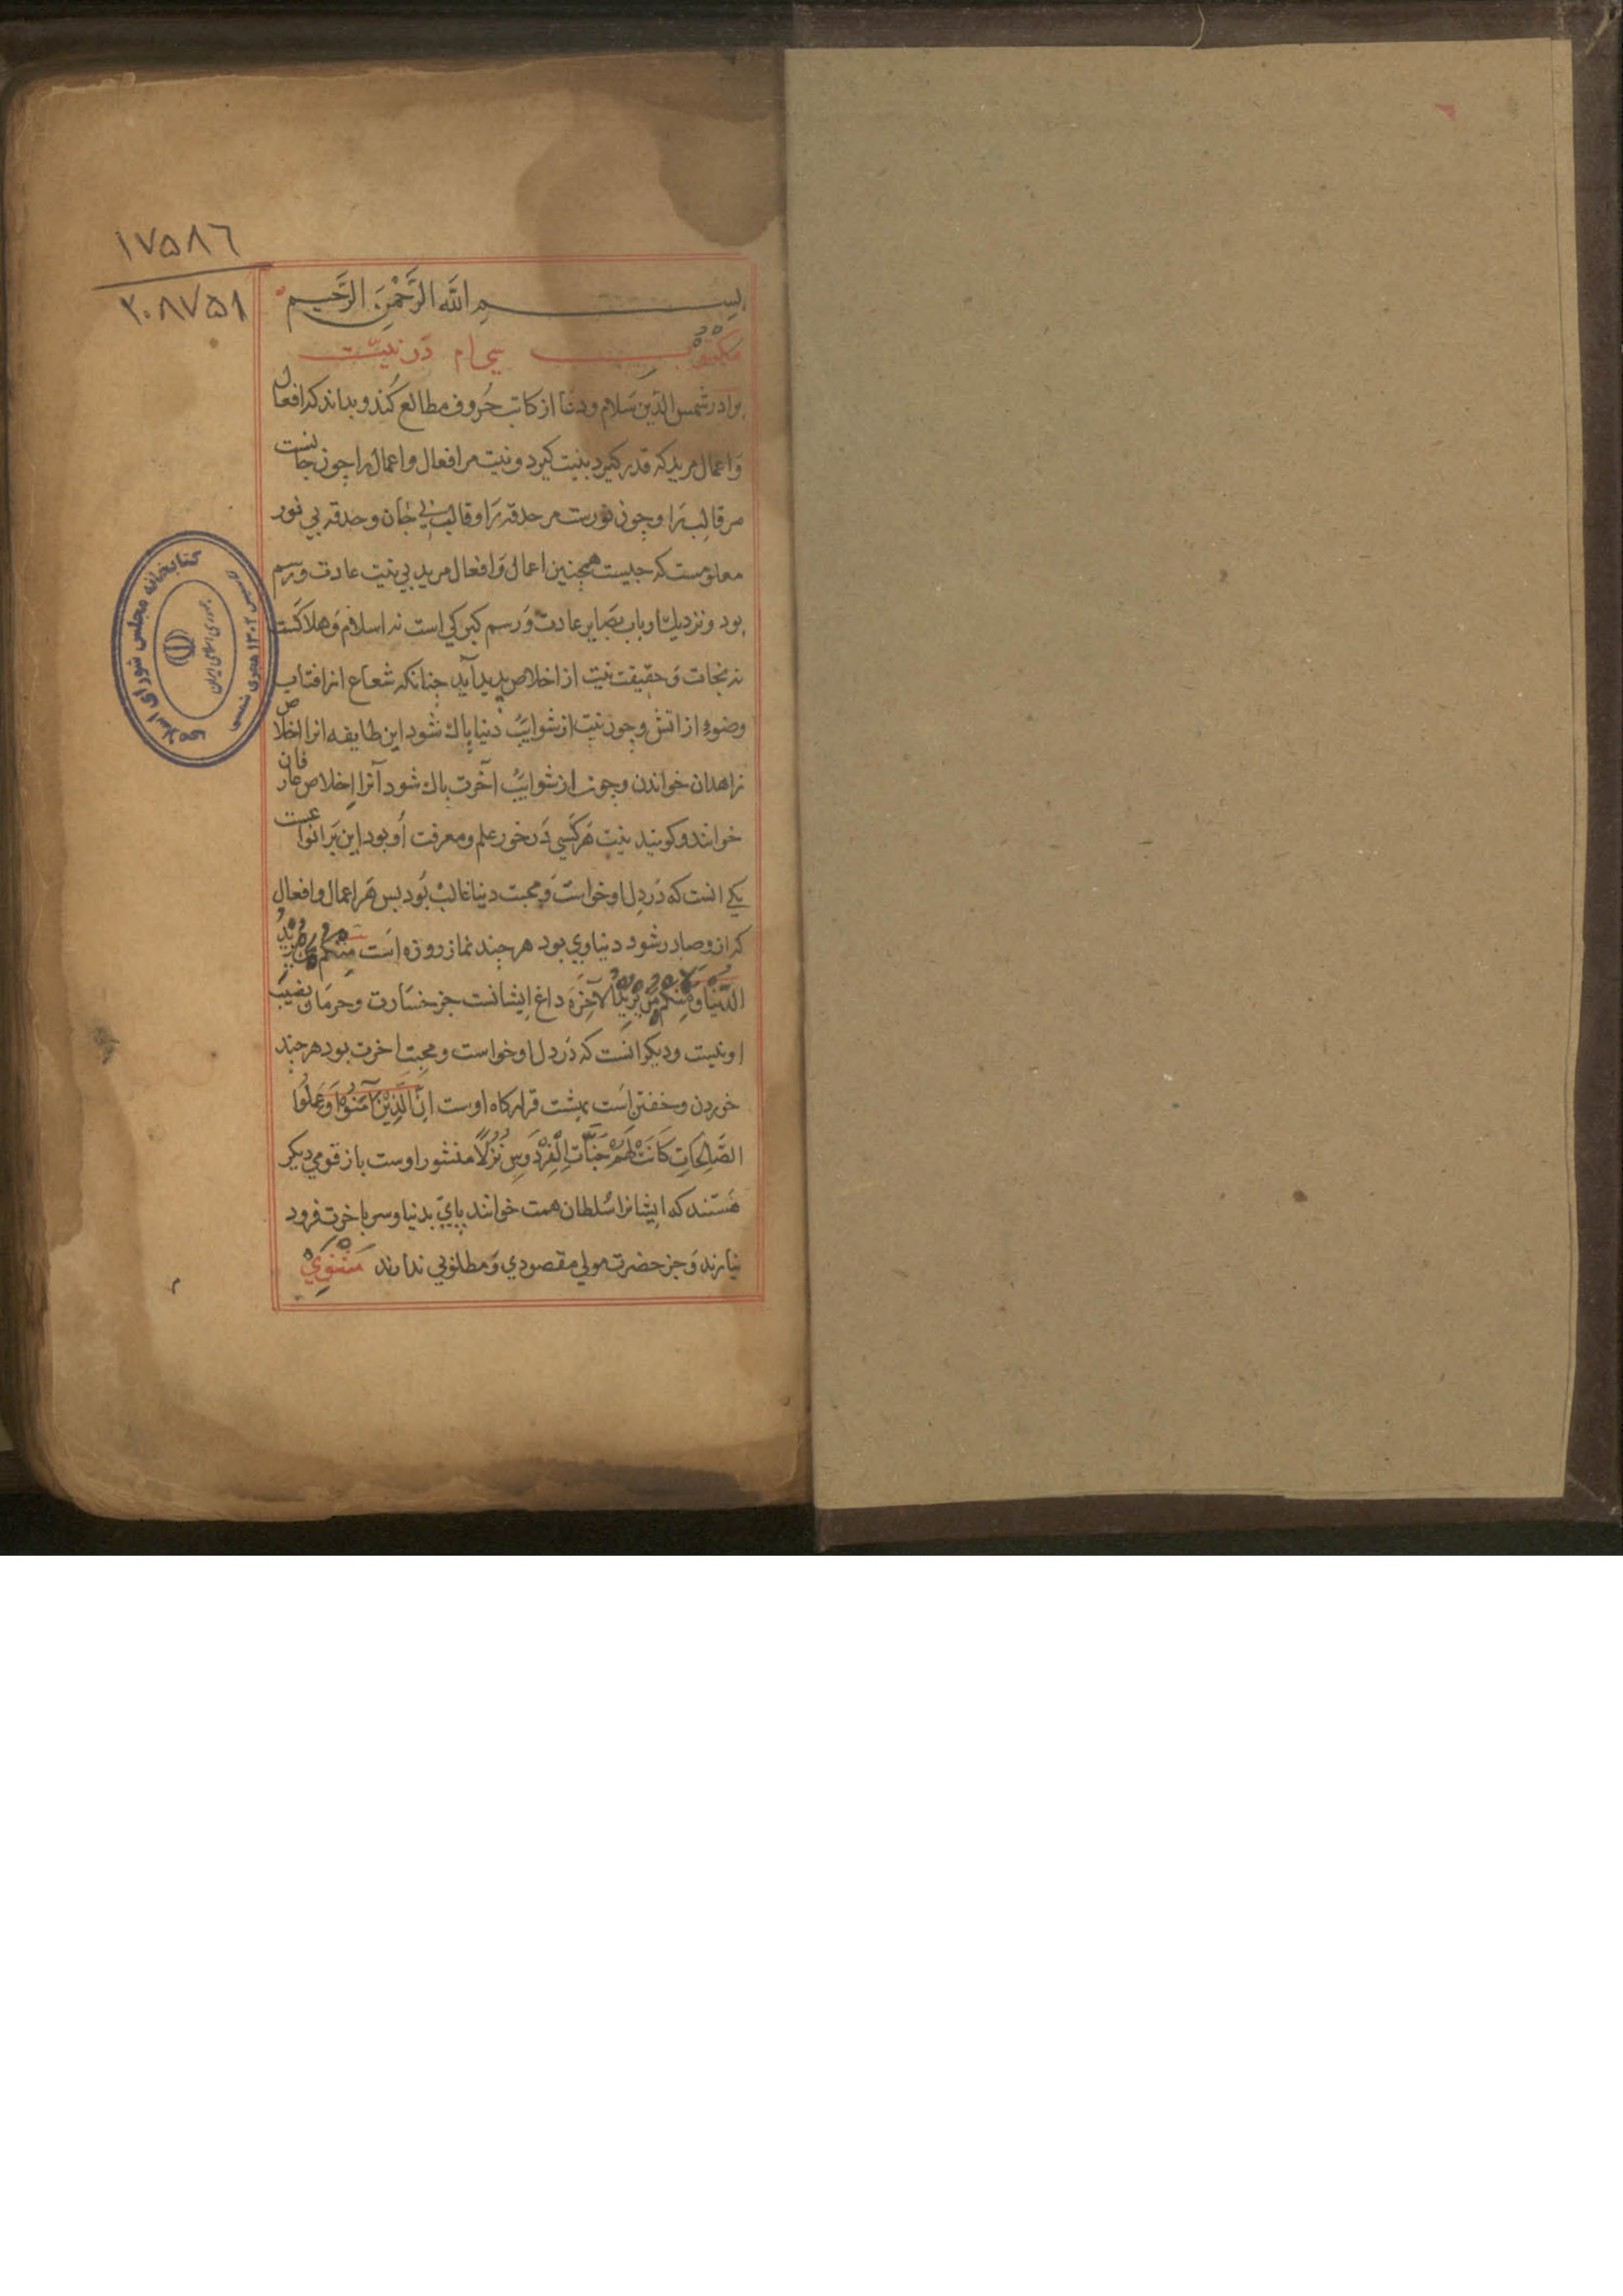 ۱۷۵۸۶
۲۰۸۷۵۱
بسم الله الرَّحْمنِ الرَّحيم
مكتوب سی‌ام در نیّت
برادر شمس الدّین سَلام ودعا از كاتب حُروف مطالع كُند وبداند كه افعال
وَاعمال مرید كه قدر كیرد بنیت كیرد ونیت مر افعال واعمال را چون جانست
مر قالب را وچون نورست مر حدقه را وقالب بی جان وحدقه بی نور
معلومست كه جیست همچنین اعمال وَافعال مرید بی نیت عادت ورسم
بود ونزدیك ارباب بصایر عادت وَرسم كبركی است نه اسلام وَهلاكست
نه نجات وَحقیقت نیت از اخلاص پدید آید چنانكه شعاع از افتاب
وضوء از اتش وچون نیت از شوایب دنیا پاك شود این طایفه انرا اخلاص
زاهدان خوانند وچون از شوایب آخرت پاك شود آنرا اخلاص عارفان
خوانند وكویند نیت هَركَسی دَرخور علم ومعرفت اُو بود این بَر انواعست
یكی انست كه دَر دل او خواست وَمحبت دنیا غالب بُود بس هَر اعمال وافعال
كه ازو صادر شود دنیاوی بود هر چند نماز روزه است مِنْكُمْ مَنْ يُرِيدُ
الدُّنْيَا وَمِنْكُمْ مَنْ يُرِيدُ الْآخِرَةَ داغ ایشانست جز خسَارت وحرمَان نصیب
او نیست ودیكر انست كه دَر دل او خواست ومحبت اخرت بود هر چند
خوردن وخفتن است بهشت قراركاه اوست اِنَّ الَّذِيْنَ آمَنُوْا وَعَمِلُوا
الصَّالِحَاتِ كَانَتْ لَهُمْ جَنَّاتُ الْفِرْدَوْسِ نُزُلًا منشور اوست باز قومی دیكر
هَستند كه ایشانرا سُلطان همت خوانند پای بدنیا وسر باخرت فرود
نیارند وَجز حضرت مولی مقصودی وَمطلوبی ندارند مَثْنَوِيْ
كتابخانه مجلس شورای اسلامی
جمهوری اسلامی ایران
تأسیس ۱۳۰۲ هجری شمسی